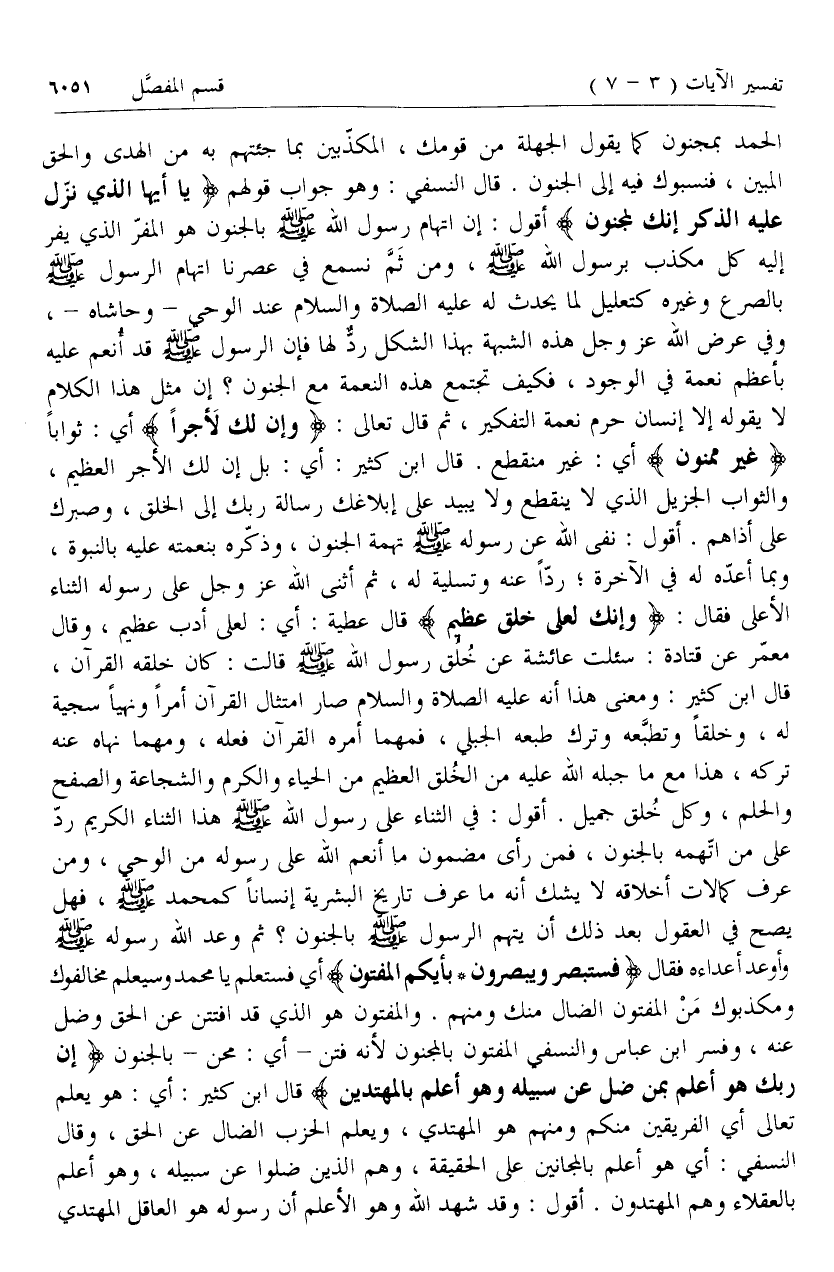 تفسير الآيات ( ٣ - ٧ ) قسم المفصَّل ٦٠٥١
الحمد بمجنون كما يقول الجهلة من قومك ، المكذّبين بما جئتهم به من الهدى والحق
المبين ، فنسبوك فيه إلى الجنون . قال النسفي : وهو جواب قولهم ﴿ يا أيها الذي نزّل
عليه الذكر إنك لمجنون ﴾ أقول : إن اتهام رسول الله ﷺ بالجنون هو المفرّ الذي يفر
إليه كل مكذب برسول الله ﷺ ، ومن ثَمَّ نسمع في عصرنا اتهام الرسول ﷺ
بالصرع وغيره كتعليل لما يحدث له عليه الصلاة والسلام عند الوحي - وحاشاه - ،
وفي عرض الله عز وجل هذه الشبهة بهذا الشكل ردٌّ لها فإن الرسول ﷺ قد أُنعم عليه
بأعظم نعمة في الوجود ، فكيف تجتمع هذه النعمة مع الجنون ؟ إن مثل هذا الكلام
لا يقوله إلا إنسان حرم نعمة التفكير ، ثم قال تعالى : ﴿ وإن لك لَأجراً ﴾ أي : ثواباً
﴿ غير ممنون ﴾ أي : غير منقطع . قال ابن كثير : أي : بل إن لك الأجر العظيم ،
والثواب الجزيل الذي لا ينقطع ولا يبيد على إبلاغك رسالة ربك إلى الخلق ، وصبرك
على أذاهم . أقول : نفى الله عن رسوله ﷺ تهمة الجنون ، وذكّره بنعمته عليه بالنبوة ،
وبما أعدّه له في الآخرة ؛ ردّاً عنه وتسلية له ، ثم أثنى الله عز وجل على رسوله الثناء
الأعلى فقال : ﴿ وإنك لعلى خلق عظيم ﴾ قال عطية : أي : لعلى أدب عظيم ، وقال
معمّر عن قتادة : سئلت عائشة عن خُلُق رسول الله ﷺ قالت : كان خلقه القرآن ،
قال ابن كثير : ومعنى هذا أنه عليه الصلاة والسلام صار امتثال القرآن أمراً ونهياً سجية
له ، وخلقاً وتطبَّعه وترك طبعه الجبلي ، فمهما أمره القرآن فعله ، ومهما نهاه عنه
تركه ، هذا مع ما جبله الله عليه من الخُلق العظيم من الحياء والكرم والشجاعة والصفح
والحلم ، وكل خُلق جميل . أقول : في الثناء على رسول الله ﷺ هذا الثناء الكريم ردّ
على من اتّهمه بالجنون ، فمن رأى مضمون ما أنعم الله على رسوله من الوحي ، ومن
عرف كمالات أخلاقه لا يشك أنه ما عرف تاريخ البشرية إنساناً كمحمد ﷺ ، فهل
يصح في العقول بعد ذلك أن يتهم الرسول ﷺ بالجنون ؟ ثم وعد الله رسوله ﷺ
وأوعد أعداءه فقال ﴿ فستبصر ويبصرون * بأيكم المفتون ﴾ أي فستعلم يا محمد وسيعلم مخالفوك
ومكذبوك مَنْ المفتون الضال منك ومنهم . والمفتون هو الذي قد افتتن عن الحق وضل
عنه ، وفسر ابن عباس والنسفي المفتون بالمجنون لأنه فتن - أي : محن - بالجنون ﴿ إن
ربك هو أعلم بمن ضل عن سبيله وهو أعلم بالمهتدين ﴾ قال ابن كثير : أي : هو يعلم
تعالى أي الفريقين منكم ومنهم هو المهتدي ، ويعلم الحزب الضال عن الحق ، وقال
النسفي : أي هو أعلم بالمجانين على الحقيقة ، وهم الذين ضلوا عن سبيله ، وهو أعلم
بالعقلاء وهم المهتدون . أقول : وقد شهد الله وهو الأعلم أن رسوله هو العاقل المهتدي